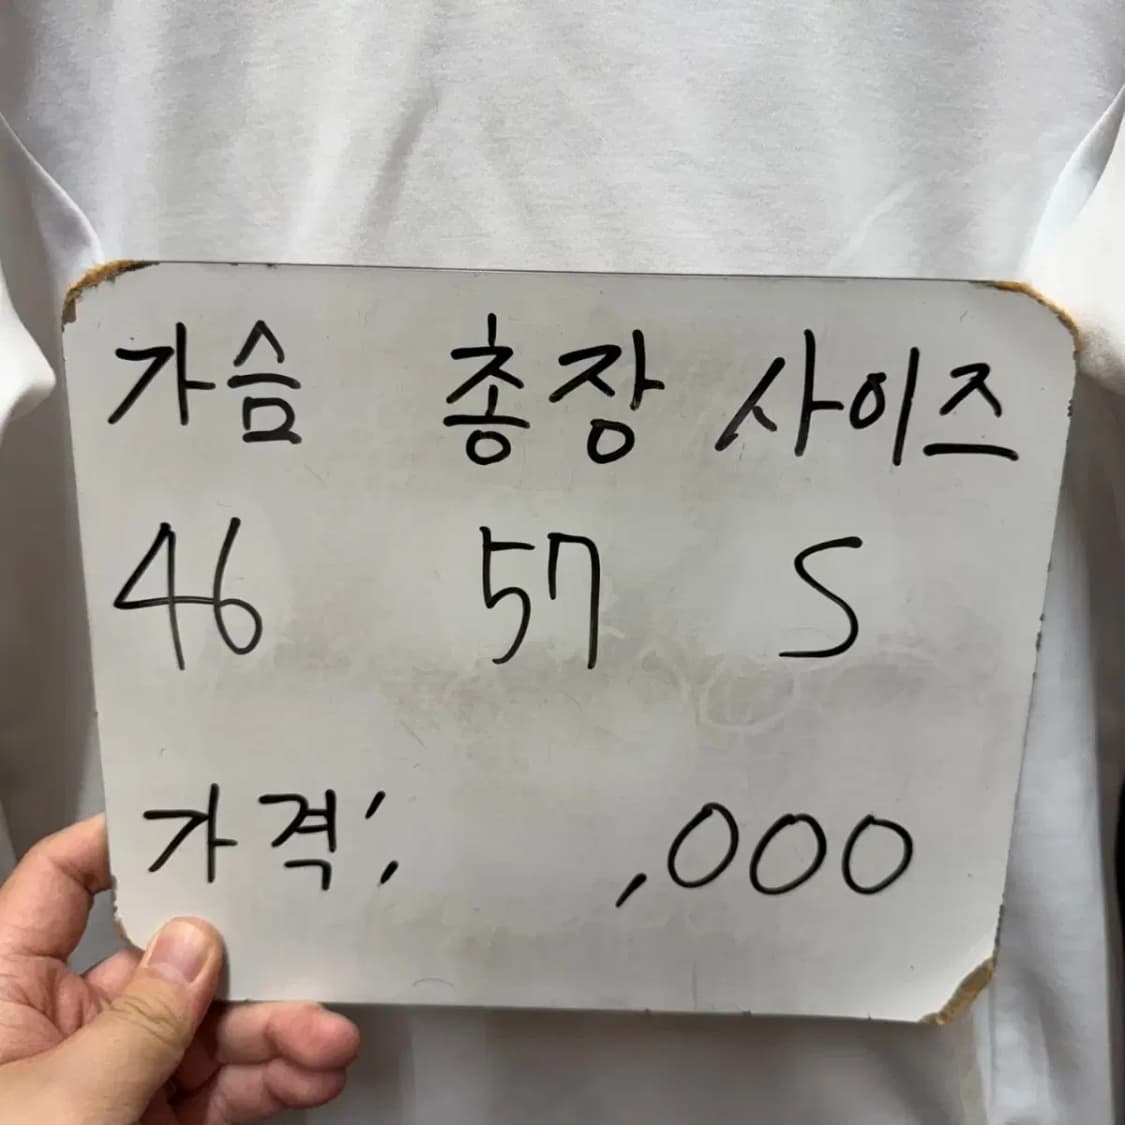 가슴 총장 사이즈
46 57 S
가격: ,000